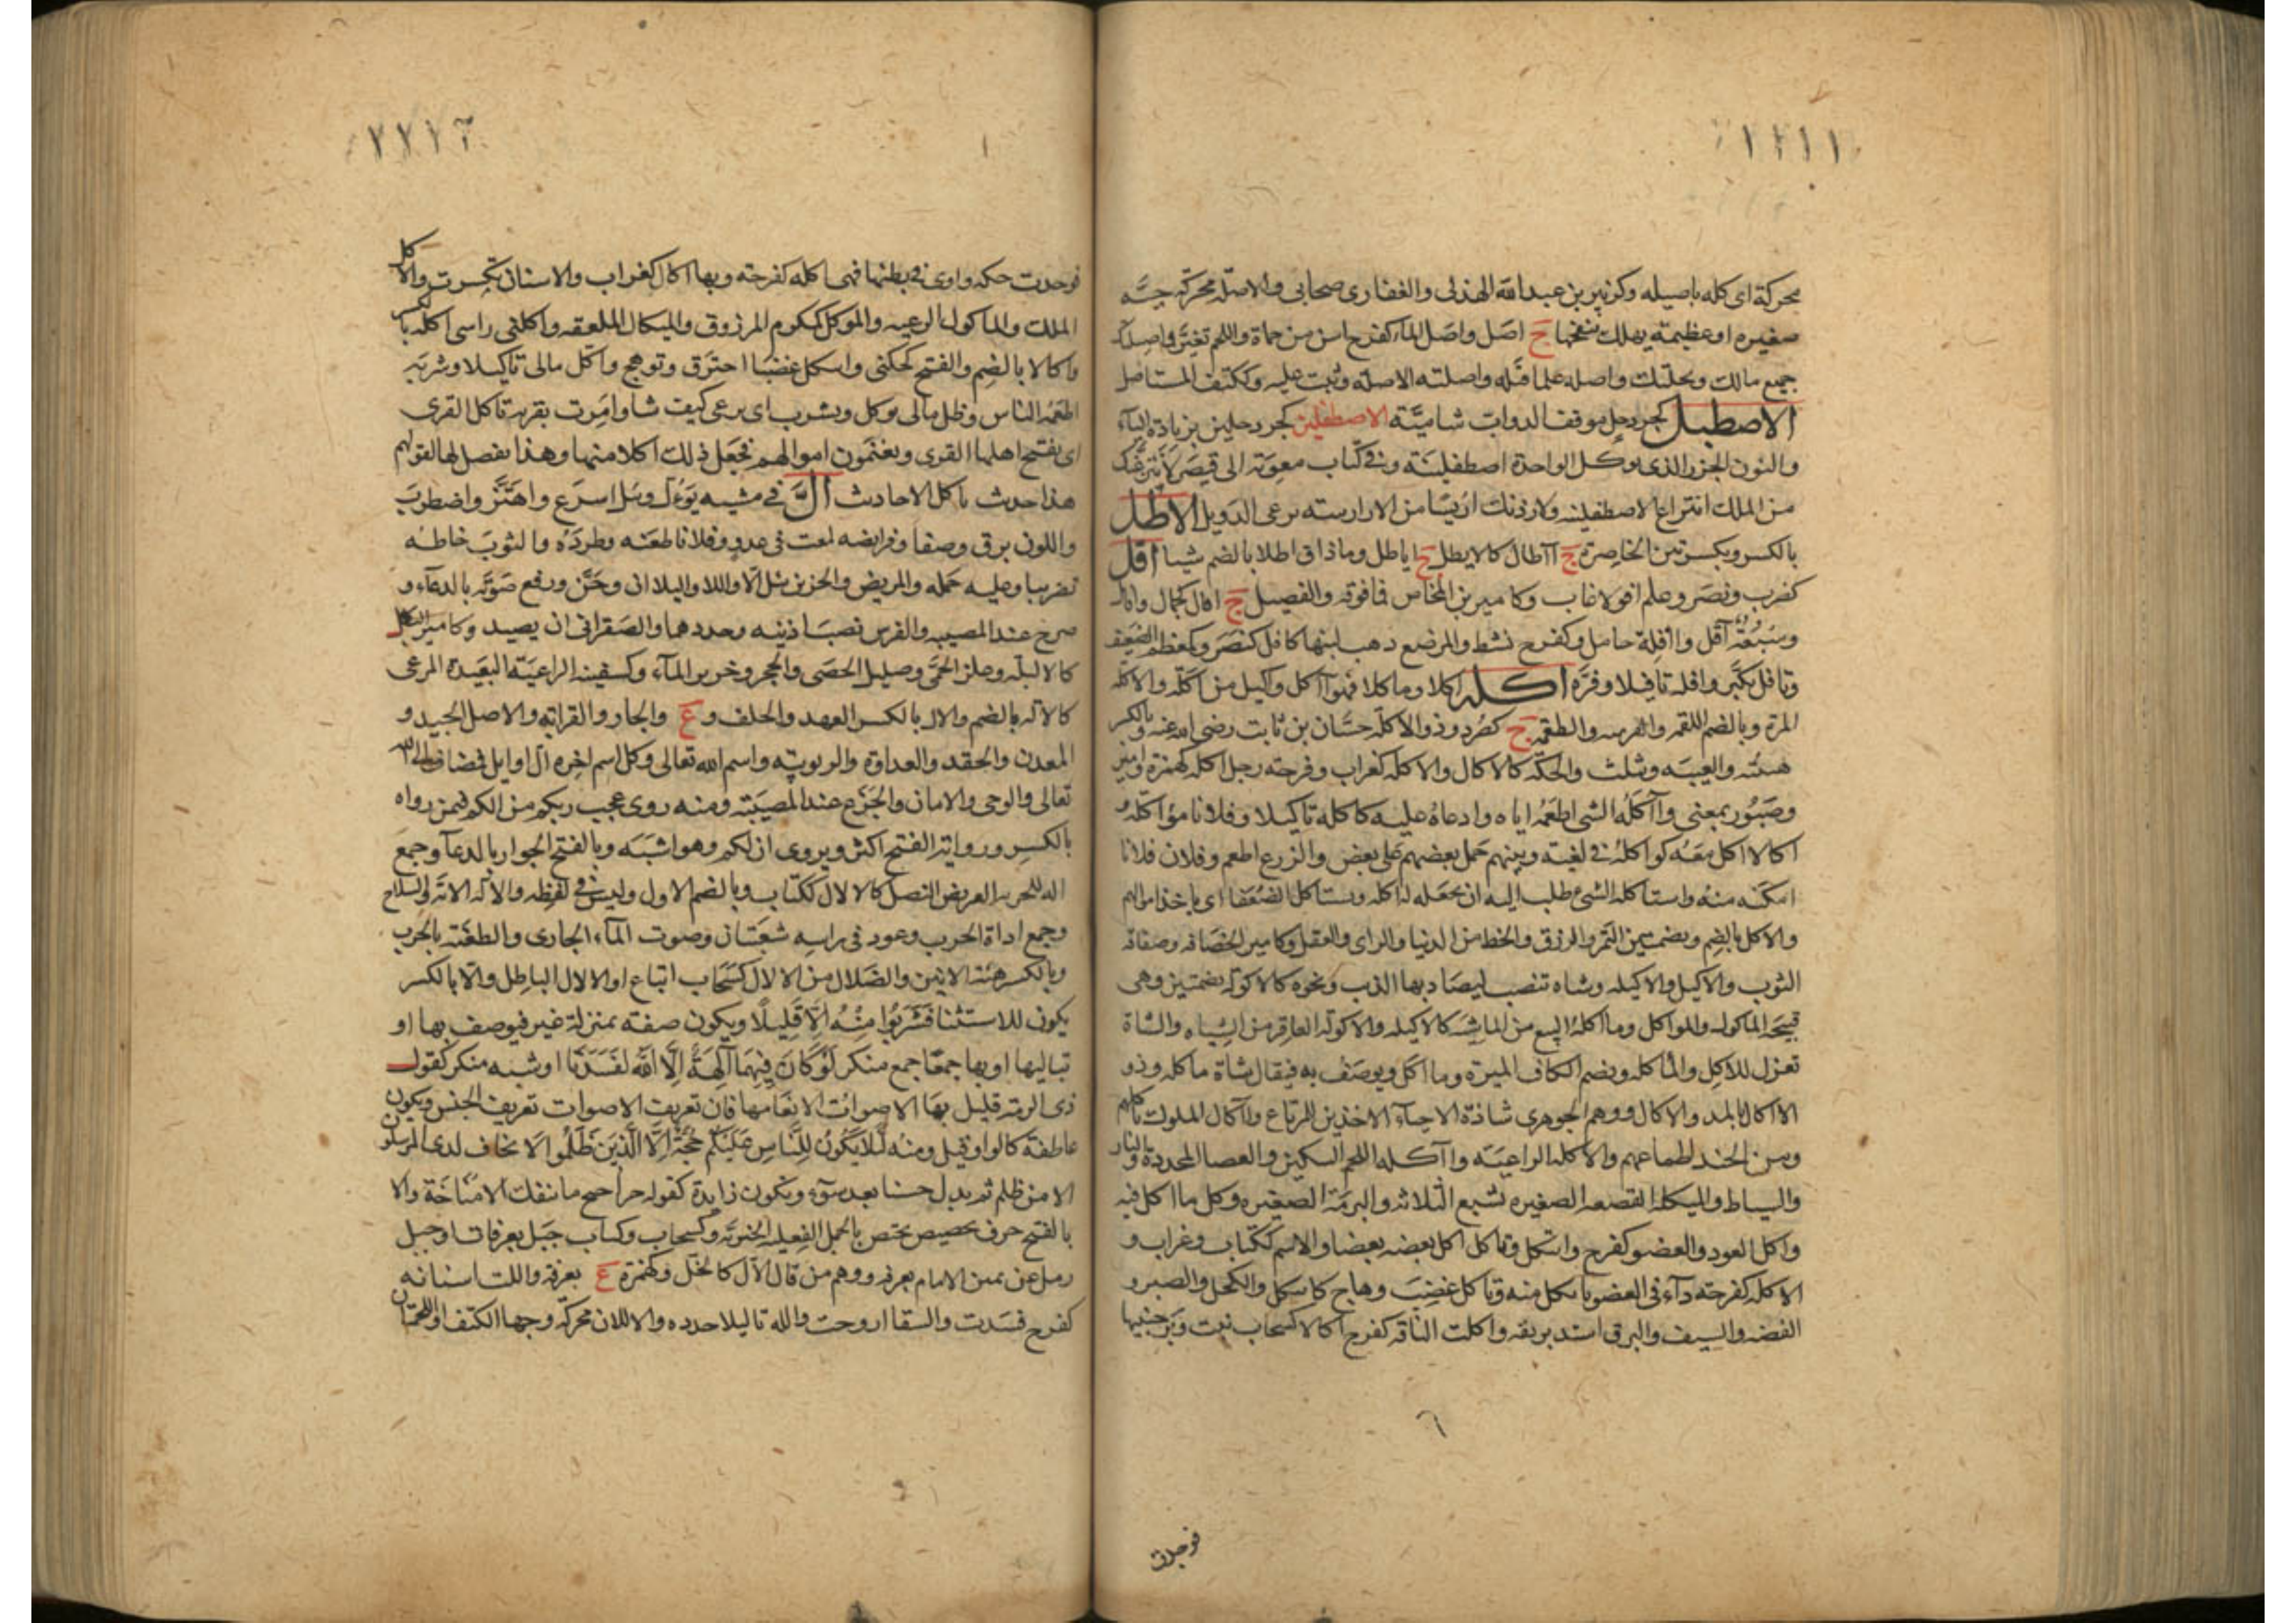 ١١١١
محركة اى كله باصيله وكزبير بن عبدالله الهذلى والغفارى صحابى والاصلة محركة حية
صغيره او عظيمة يهلك بنفخها ج اصل واصل الماء كفرح اسن من حماة واللحم تغير واصيلتك
جميع مالك ونخلتك واصله علما قتله واصلته الاصلة وثبت عليه وككتف المستاصل
الاصطبل كجردحل موقف الدواب شامية الاصطفلين كجردحلين بزيادة الياء
والنون الجزر الذى يوكل الواحدة اصطفلينة وفى كتاب معوية الى قيصر لانتزعنك
من الملك انتزاع الاصطفلينه ولاردنك اريسا من الارارسته ترعى الدوبل الاطل
بالكسر وبكسرتين الخاصرة ج آاطال كالايطل ج اياطل وما ذاق اطلا بالضم شيا افل
كضرب ونصر وعلم افولا غاب وكامير بن المخاض فما فوقه والفصيل ج افال كجمال وافائل
وسبعة آفل وآفلة حامل وكفرح نشط والمرضع ذهب لبنها كافل كنصر وكمعظم الضعيف
وتافل تكبر وافله تافيلا وقره اكله اكلا وماكلا فهو آكل واكيل من اكلة والاكلة
المرة وبالضم اللقمه والقرصه والطعمه ج كصرد وذو الاكلة حسان بن ثابت رضى الله عنه وبالكسر
هيئته والغيبه وتثلث والحكة كالاكال والاكلة كغراب وفرحته رجل اكله كهمزة وامير
وصبور بمعنى وآكله الشى اطعمه اياه وادعاه عليه كاكله تاكيلا وفلانا مؤاكلة
اكالا اكل معه كواكله فى لغية وبينهم حمل بعضهم على بعض والزرع اطعم وفلان فلانا
امكنه منه واستاكله الشئ طلب اليه ان يجعله له اكله ويستاكل الضعفا اى ياخذ اموالهم
والاكل بالضم وبضمتين التمر والرزق والحظ من الدنيا والراى والعقل وكامير الحصافه وصفاقه
الثوب والاكيل والاكيله وشاه تنصب ليصاد بها الذب ونحوه كالاكولة بضمتين وهى
قبيحة الماكول والمواكل وما اكله السبع من الماشية كالاكيله والاكولة العاقر من الشياه والشاة
تعزل للاكل والماكله وبضم الكاف الميرة وما اكل ويوصف به فيقال شاة ماكله وذو
الاكال بالمد والاكال ووهم الجوهرى شاذة الاحياء الاخذين المرباع وآكال الملوك ماكلهم
ومن الجند اطماعهم والاكلة الراعية وآكلة اللحم السكين والعصا المحددة والنار
والسياط والميكلة القصعه الصغيره تشبع الثلاثه والبرمة الصغيره وكل ما اكل فيه
واكل العود والعضو كفرح وائتكل وتاكل اكل بعضه بعضا والاسم ككتاب وغراب و
الاكله كفرحته داء فى العضو ياتكل منه وتاكل غضب وهاج كاتكل والكحل والصبر و
الفضه والسيف والبرق اشتد بريقه واكلت الناقه كفرح اكالا كسحاب نبت وبر جنينها
فوجدت
١١١٢
فوجدت حكه واوى فى بطنها فهى اكله كفرحته وبها اكال كغراب والاسنان تكسرت والآكل
الملك والماكول الرعيه والموكل كمكرم المرزوق والميكال الملعقه واكلنى راسى اكله بالكسر
واكالا بالضم والفتح كحكنى وائتكل غضبا احترق وتوهج واكل مالى تاكيلا وشربه
اطعمه الناس وظل مالى يوكل ويشرب اى يرعى كيف شا وامرت بقرية تاكل القرى
اى يفتح اهلها القرى ويغنمون اموالهم فجعل ذلك اكلا منها وهذا تفضيل لها كقولهم
هذا حدث ياكل الاحاديث الّ فى مشيه يؤل ويئل اسرع واهتز واضطرب
واللون برق وصفا وفرايصه لمعت فى عدو وفلانا طعنه وطرده والثوب خاطه
تضريبا وعليه حمله والمريض والحزين يئل الّا واللا واليلا ان وحن ورفع صوته بالدعاء و
صرخ عند المصيبه والفرس نصب اذنيه وحددهما والصقر انى ان يصيد وكامير الثكل
كالاليله وعلز الحمى وصليل الحصى والحجر وخرير الماء وكسفينه الراعية البعيدة المرعى
كالالة بالضم والال بالكسر العهد والحلف و ع والجار والقرابة والاصل الجيد و
المعدن والحقد والعداوة والربوبية واسم الله تعالى وكل اسم اخره ال او ايل فمضاف الى الله
تعالى والوحى والامان والجزع عند المصيبته ومنه روى عجب ربكم من الكم فيمن رواه
بالكسر ورواية الفتح اكثر ويروى ازلكم وهو اشبه وبالفتح الجوار بالدعا وجمع
الة للحربه العريض النصل كالالال ككتاب وبالضم الاول وليس فى لفظه والالة الانة والسلاح
وجمع اداة الحرب وعود فى راسه شعبتان وصوت الماء الجارى والطعنة بالحرب
وبالكسر هيئة الانين والضلال من الالال كسحاب اتباع او الالال الباطل والا بالكسر
يكون للاستثنا فشربوا منه الا قليلا ويكون صفته بمنزلة غير فيوصف بها او
تباليها او بها جمعا جمع منكر لو كان فيهما الهة الا الله لفسدتا او شبه منكر كقول
ذى الرمة قليل بها الاصوات الا بغامها فان تعريف الاصوات تعريف الجنس ويكون
عاطفة كالواو قيل ومنه لئلا يكون للناس عليكم حجة الا الذين ظلموا الا يخاف لدى المرسلون
الا من ظلم ثم بدل حسنا بعد سوء وتكون زايدة كقوله حراجيج ما تنفك الا مناخة والا
بالفتح حرف تحضيض تختص بالجمل الفعيله الخبرية وكسحاب وكتاب جبل بعرفات او حبل
رمل عن يمين الامام بعرفه ووهم من قال الال كالخل وكهمزة ع بعرفة واللت اسنانه
كفرح فسدت والسقا اروحت والله تاليلا حدده والاللان محركة وجها الكتف او اللحمتان